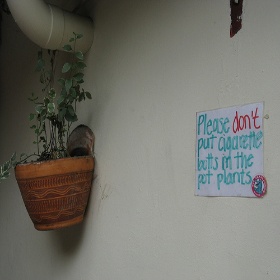 Please don't
put cigarette
butts in the
pot plants